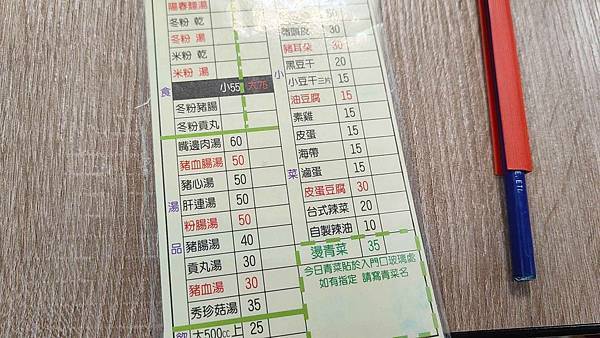 陽春麵湯
冬粉 乾
冬粉 湯
米粉 乾
米粉 湯
食 小55 大75
冬粉豬腸
冬粉貢丸
湯品
嘴邊肉湯 60
豬血腸湯 50
豬心湯 50
肝連湯 50
粉腸湯 50
豬腸湯 40
貢丸湯 30
豬血湯 30
秀珍菇湯 35
飲 大500cc上 25
小菜
嘴頭皮 50
豬耳朵 30
黑豆干 20
小豆干三片 15
油豆腐 15
素雞 15
皮蛋 15
海帶 15
滷蛋 15
皮蛋豆腐 30
台式辣菜 20
自製辣油 10
燙青菜 35
今日青菜貼於入門口玻璃處
如有指定 請寫青菜名